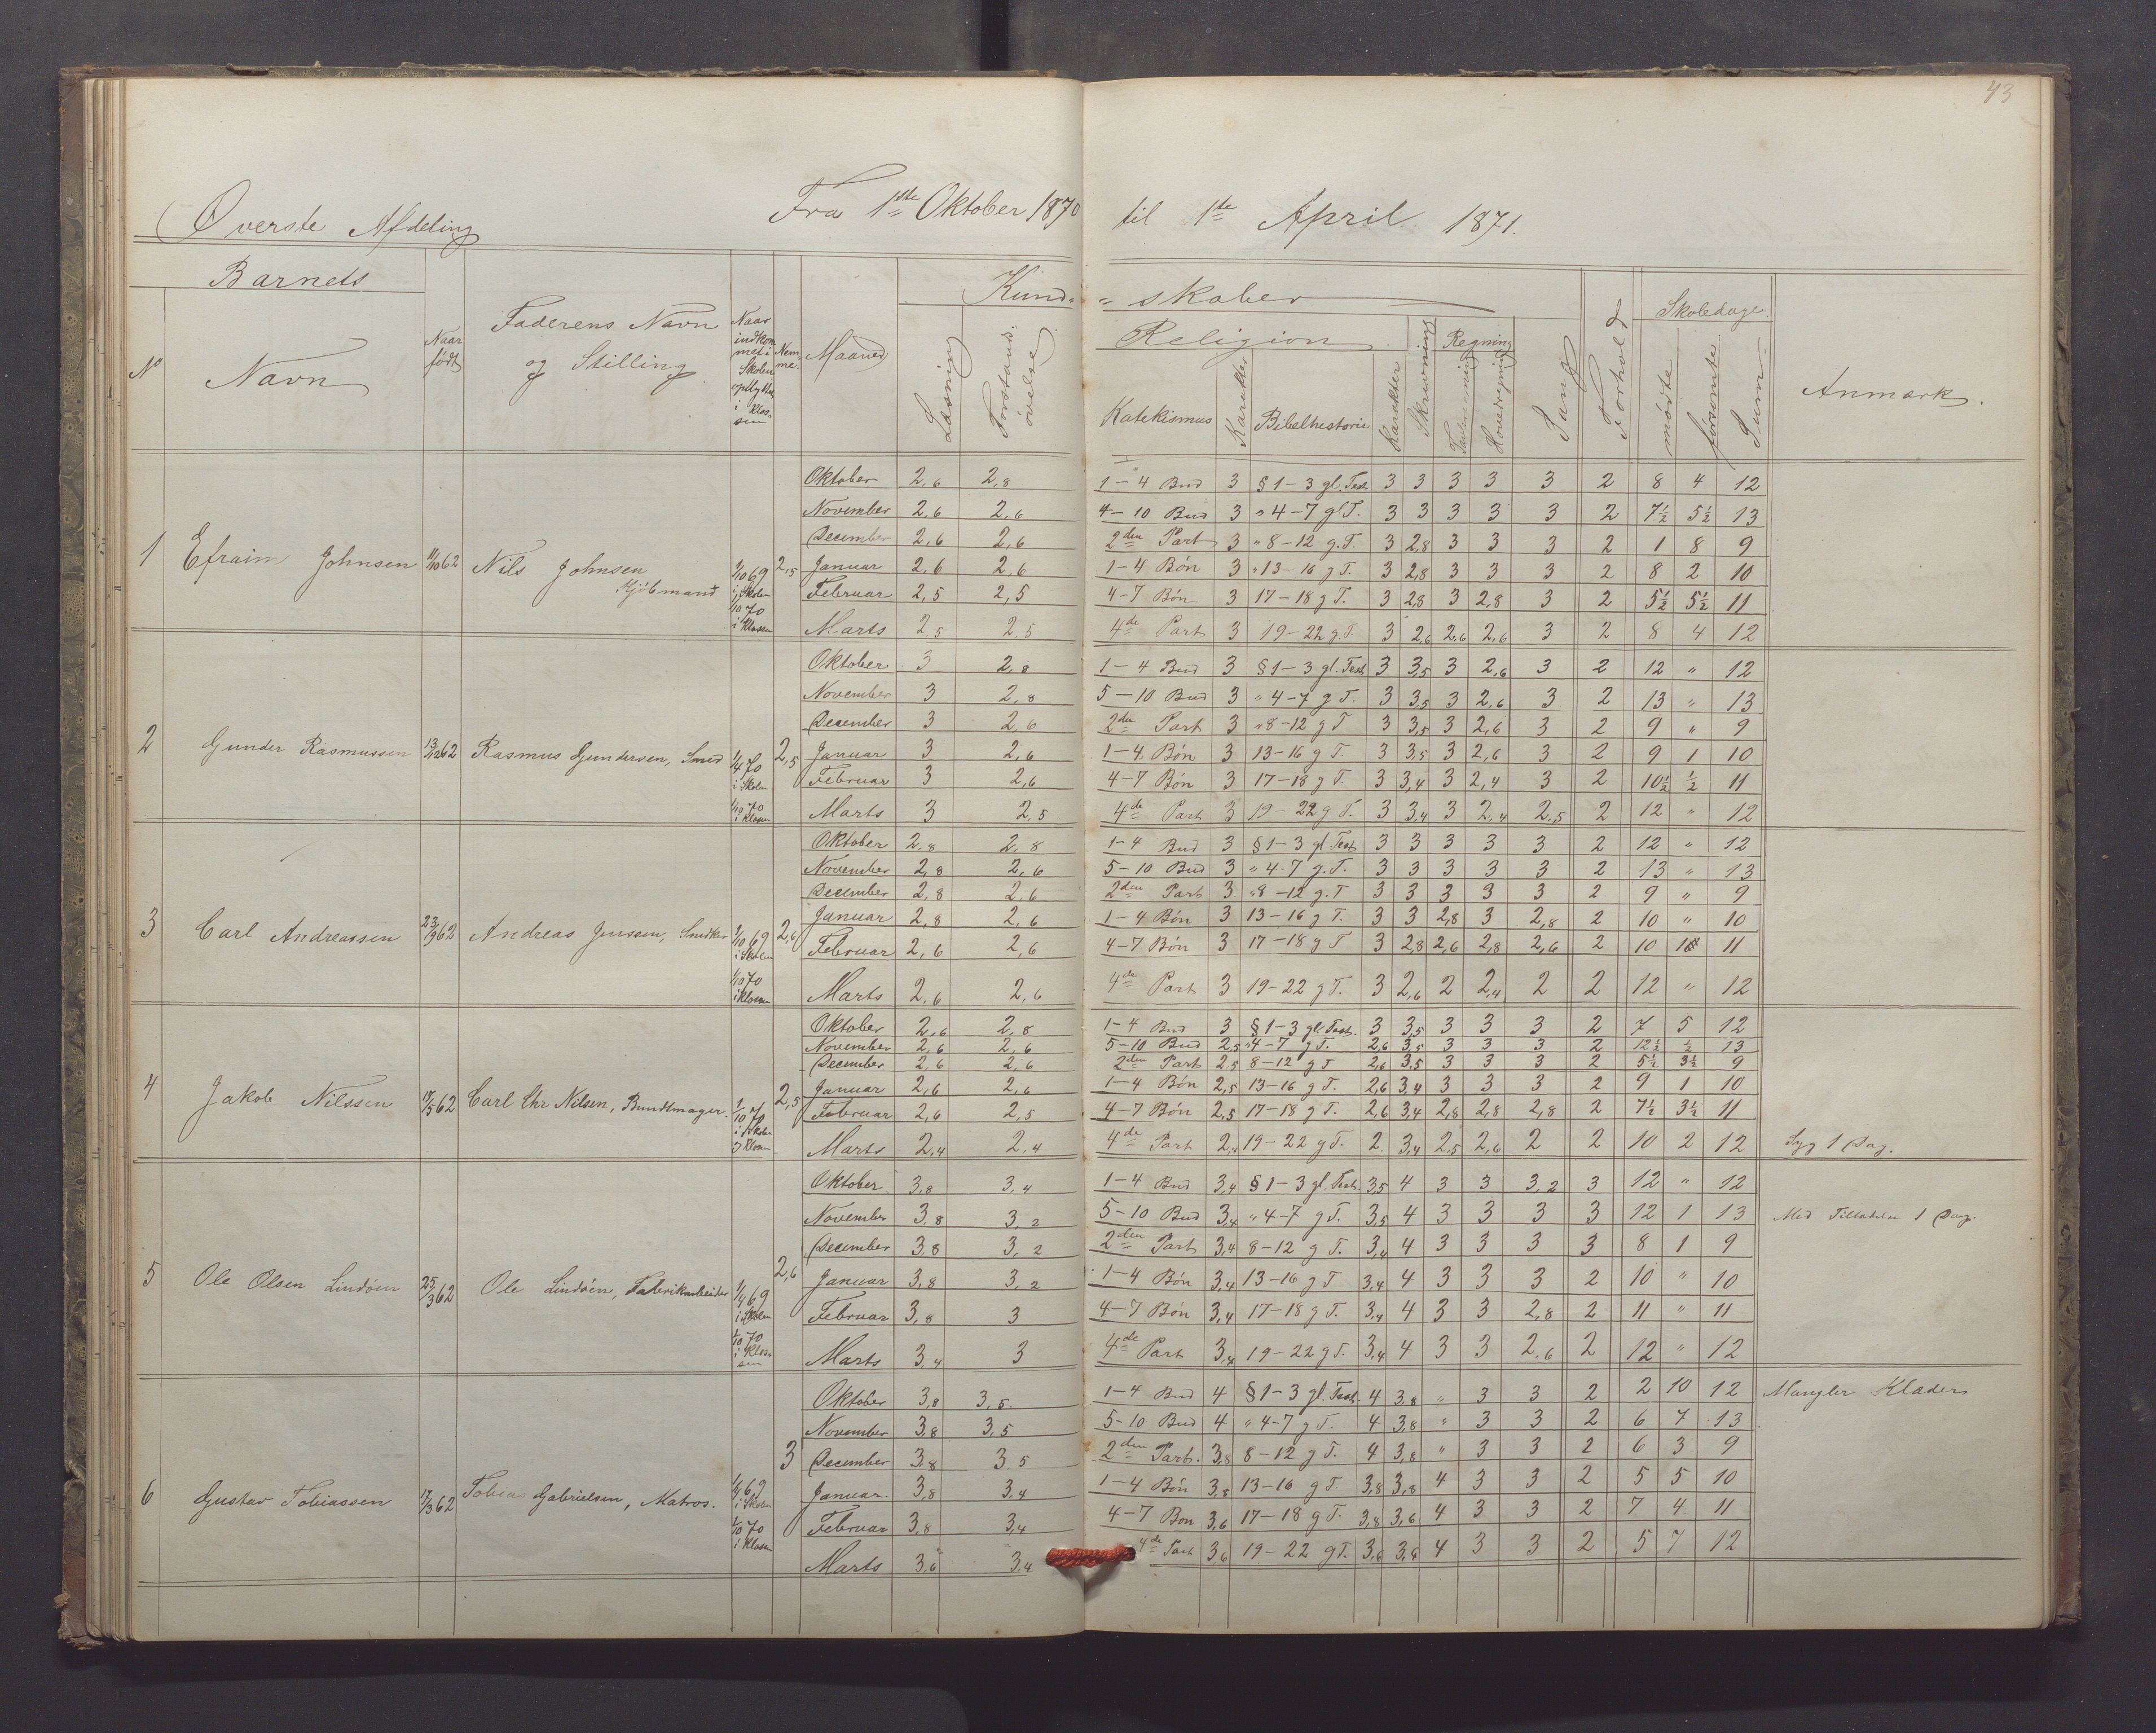 43
Øverste Afdeling
Fra 1ste Oktober 1870 til 1ste April 1871.
Barnets
No
Navn
Naar født
Faderens Navn og Stilling
Naar indkommet i Skolen opflyttet i Klassen
Nemme.
Maaned
Kund- skaber
Læsning
Forstands-øvelse
Religion.
Katekismus
Karakter
Bibelhistorie
Karakter
Skrivning
Regning
Tavleregning
Hovedregning
Sang
Forhold
Skoledage.
mødte
forsømte
Sum
Anmærk.
1 Efraim Johnsen 11/10 62 Nils Johnsen Kjøbmand 1/10 69 i Skolen 1/10 70 i Klassen 2,5
Oktober 2,6 2,8 1-4 Bud 3 § 1-3 gl. Test. 3 3 3 3 3 2 8 4 12
November 2,6 2,6 4-10 Bud 3 " 4-7 gl T. 3 3 3 3 3 2 7½ 5½ 13
December 2,6 2,6 2den Part 3 " 8-12 g. T. 3 2,8 3 3 3 2 1 8 9
Januar 2,6 2,6 1-4 Bøn 3 " 13-16 g T. 3 2,8 3 3 3 2 8 2 10
Februar 2,5 2,5 4-7 Bøn 3 17-18 g T. 3 2,8 3 2,8 3 2 5½ 5½ 11
Marts 2,5 2,5 4de Part 3 19-22 g. T. 3 2,6 2,6 2,6 3 2 8 4 12
2 Gunder Rasmussen 13/12 62 Rasmus Gundersen, Smed 1/4 70 i Skolen 1/10 70 i Klassen 2,5
Oktober 3 2,8 1-4 Bud 3 § 1-3 gl. Test. 3 3,5 3 2,6 3 2 12 " 12
November 3 2,8 5-10 Bud 3 " 4-7 g T. 3 3,5 3 2,6 3 2 13 " 13
December 3 2,6 2den Part 3 " 8-12 g T 3 3,5 3 2,6 3 2 9 " 9
Januar 3 2,6 1-4 Bøn 3 13-16 g T. 3 3,5 3 2,6 3 2 9 1 10
Februar 3 2,6 4-7 Bøn 3 17-18 g T. 3 3,4 3 2,4 3 2 10½ ½ 11
Marts 3 2,5 4de Part 3 19-22 g T. 3 3,4 3 2,4 2,5 2 12 " 12
3 Carl Andreassen 23/9 62 Andreas Jenssen, Snedker 1/10 69 i Skolen 1/10 70 i Klassen 2,6
Oktober 2,8 2,8 1-4 Bud 3 § 1-3 gl Test. 3 3 3 3 3 2 12 " 12
November 2,8 2,6 5-10 Bud 3 " 4-7 g. T. 3 3 3 3 3 2 13 " 13
December 2,8 2,6 2den Part 3. " 8-12 g. T 3 3 3 3 3 2 9 " 9
Januar 2,8 2,6 1-4 Bøn 3 13-16 g T. 3 3 2,8 3 2,8 2 10 " 10
Februar 2,6 2,6 4-7 Bøn 3 17-18 g T 3 2,8 2,6 2,8 2,6 2 10 1 11
Marts 2,6 2,6 4de Part 3 19-22 g T. 3 2,6 2 2,4 2 2 12 " 12
4 Jakob Nilssen 18/5 62 Carl Chr Nilsen, Bundtmager. 1/10 70 i Skolen og Klassen 2,5
Oktober 2,6 2,8 1-4 Bud 3 § 1-3 gl. Test. 3 3,5 3 3 3 2 7 5 12
November 2,6 2,6 5-10 Bud 2,5 " 4-7 g T. 2,6 3,5 3 3 3 2 12½ ½ 13
December 2,6 2,6 2den Part 2,5 8-12 g T 2,6 3,5 3 3 3 2 5½ 3½ 9
Januar 2,6 2,6 1-4 Bøn 2,5 13-16 g T. 2,6 3,4 3 3 3 2 9 1 10
Februar 2,6 2,5 4-7 Bøn 2,5 17-18 g T. 2,6 3,4 2,8 2,8 2,8 2 7½ 3½ 11
Marts 2,4 2,4 4de Part 2,4 19-22 g T. 2. 3,4 2,5 2,6 2 2 10 2 12 Syg 1 Dag.
5 Ole Olsen Lindøen 25/3 62 Ole Lindøen, Fabrikarbeider 1/4 69 i Skolen 1/10 70 i Klassen 2,6
Oktober 3,8 3,4 1-4 Bud 3,4 § 1-3 gl. Test. 3,5 4 3 3 3,2 3 12 " 12
November 3,8 3,2 5-10 Bud 3,4 " 4-7 g T. 3,5 4 3 3 3 3 12 1 13 Med Tilladelse 1 Dag.
December 3,8 3,2 2den Part 3,4 8-12 g T. 3,4 4 3 3 3 3 8 1 9
Januar 3,8 3,2 1-4 Bøn 3,4 13-16 g T 3,4 4 3 3 3 2 10 " 10
Februar 3,8 3 4-7 Bøn 3,4 17-18 g T. 3,4 4 3 3 2,8 2 11 " 11
Marts 3,4 3 4de Part 3,4 19-22 g T. 3,4 4 3 3 2,6 2 12 " 12
6 Gustav Tobiassen 17/3 62 Tobias Gabrielsen, Matros. 1/4 69 i Skolen 1/10 70 i Klassen 3
Oktober 3,8 3,5 1-4 Bud 4 § 1-3 gl. Test. 4 3,8 " 3 3 2 2 10 12 Mangler Klæder
November 3,8 3,5 5-10 Bud 4 " 4-7 g T. 4 3,8 " 3 3 2 6 7 13
December 3,8 3,5 2den Part. 3,8 8-12 g T. 4 3,8 " 3 3 2 6 3 9
Januar. 3,8 3,4 1-4 Bøn 3,8 13-16 g T. 3,8 3,8 4 3 3 2 5 5 10
Februar 3,8 3,4 4-7 Bøn 3,6 17-18 g T. 3,8 3,6 4 3 3 2 7 4 11
Marts 3,6 3,4 4de Part 3,6 19-22 g T. 3,6 3,6 4 3 3 2 5 7 12